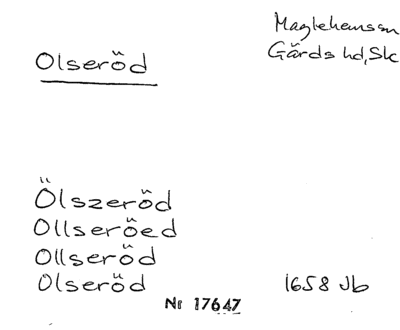 Maglehemssn
Olseröd
Gärds hd, Sk
Ölszeröd
Ollseröed
Ollseröd
Olseröd 1658 Jb
Nr 17647